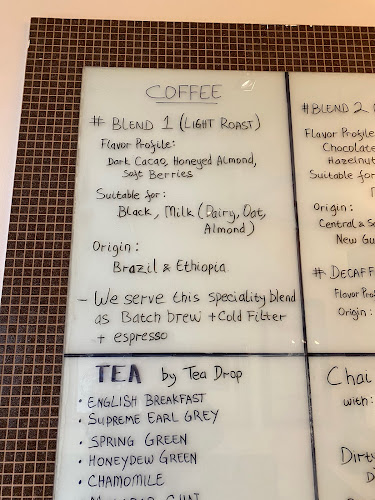 COFFEE
# BLEND 1 (LIGHT ROAST)
Flavor Profile:
Dark Cacao, Honeyed Almond,
Soft Berries
Suitable for:
Black, Milk (Dairy, Oat,
Almond)
Origin:
Brazil & Ethiopia
- We serve this speciality blend
as Batch brew + Cold Filter
+ espresso
#BLEND 2
Flavor Profile
Chocolate
Hazelnut
Suitable for
Origin:
Central & S
New Gu
# DECAFF
Flavor Pro
Origin:
TEA by Tea Drop
• ENGLISH BREAKFAST
• SUPREME EARL GREY
• SPRING GREEN
• HONEYDEW GREEN
• CHAMOMILE
Chai
with:
Dirty